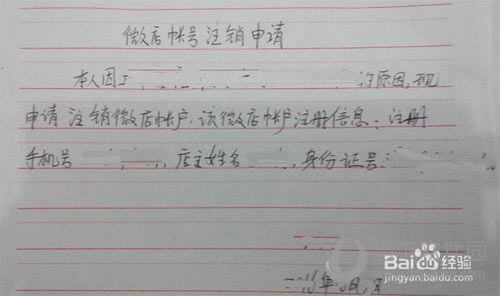 微店帐号注销申请
本人因 的原因,现
申请 注销微店帐户.该微店帐户注册信息:注册
手机号 ,店主姓名 ,身份证号:
年 月 日
Baidu 经验
jingyan.baidu.com